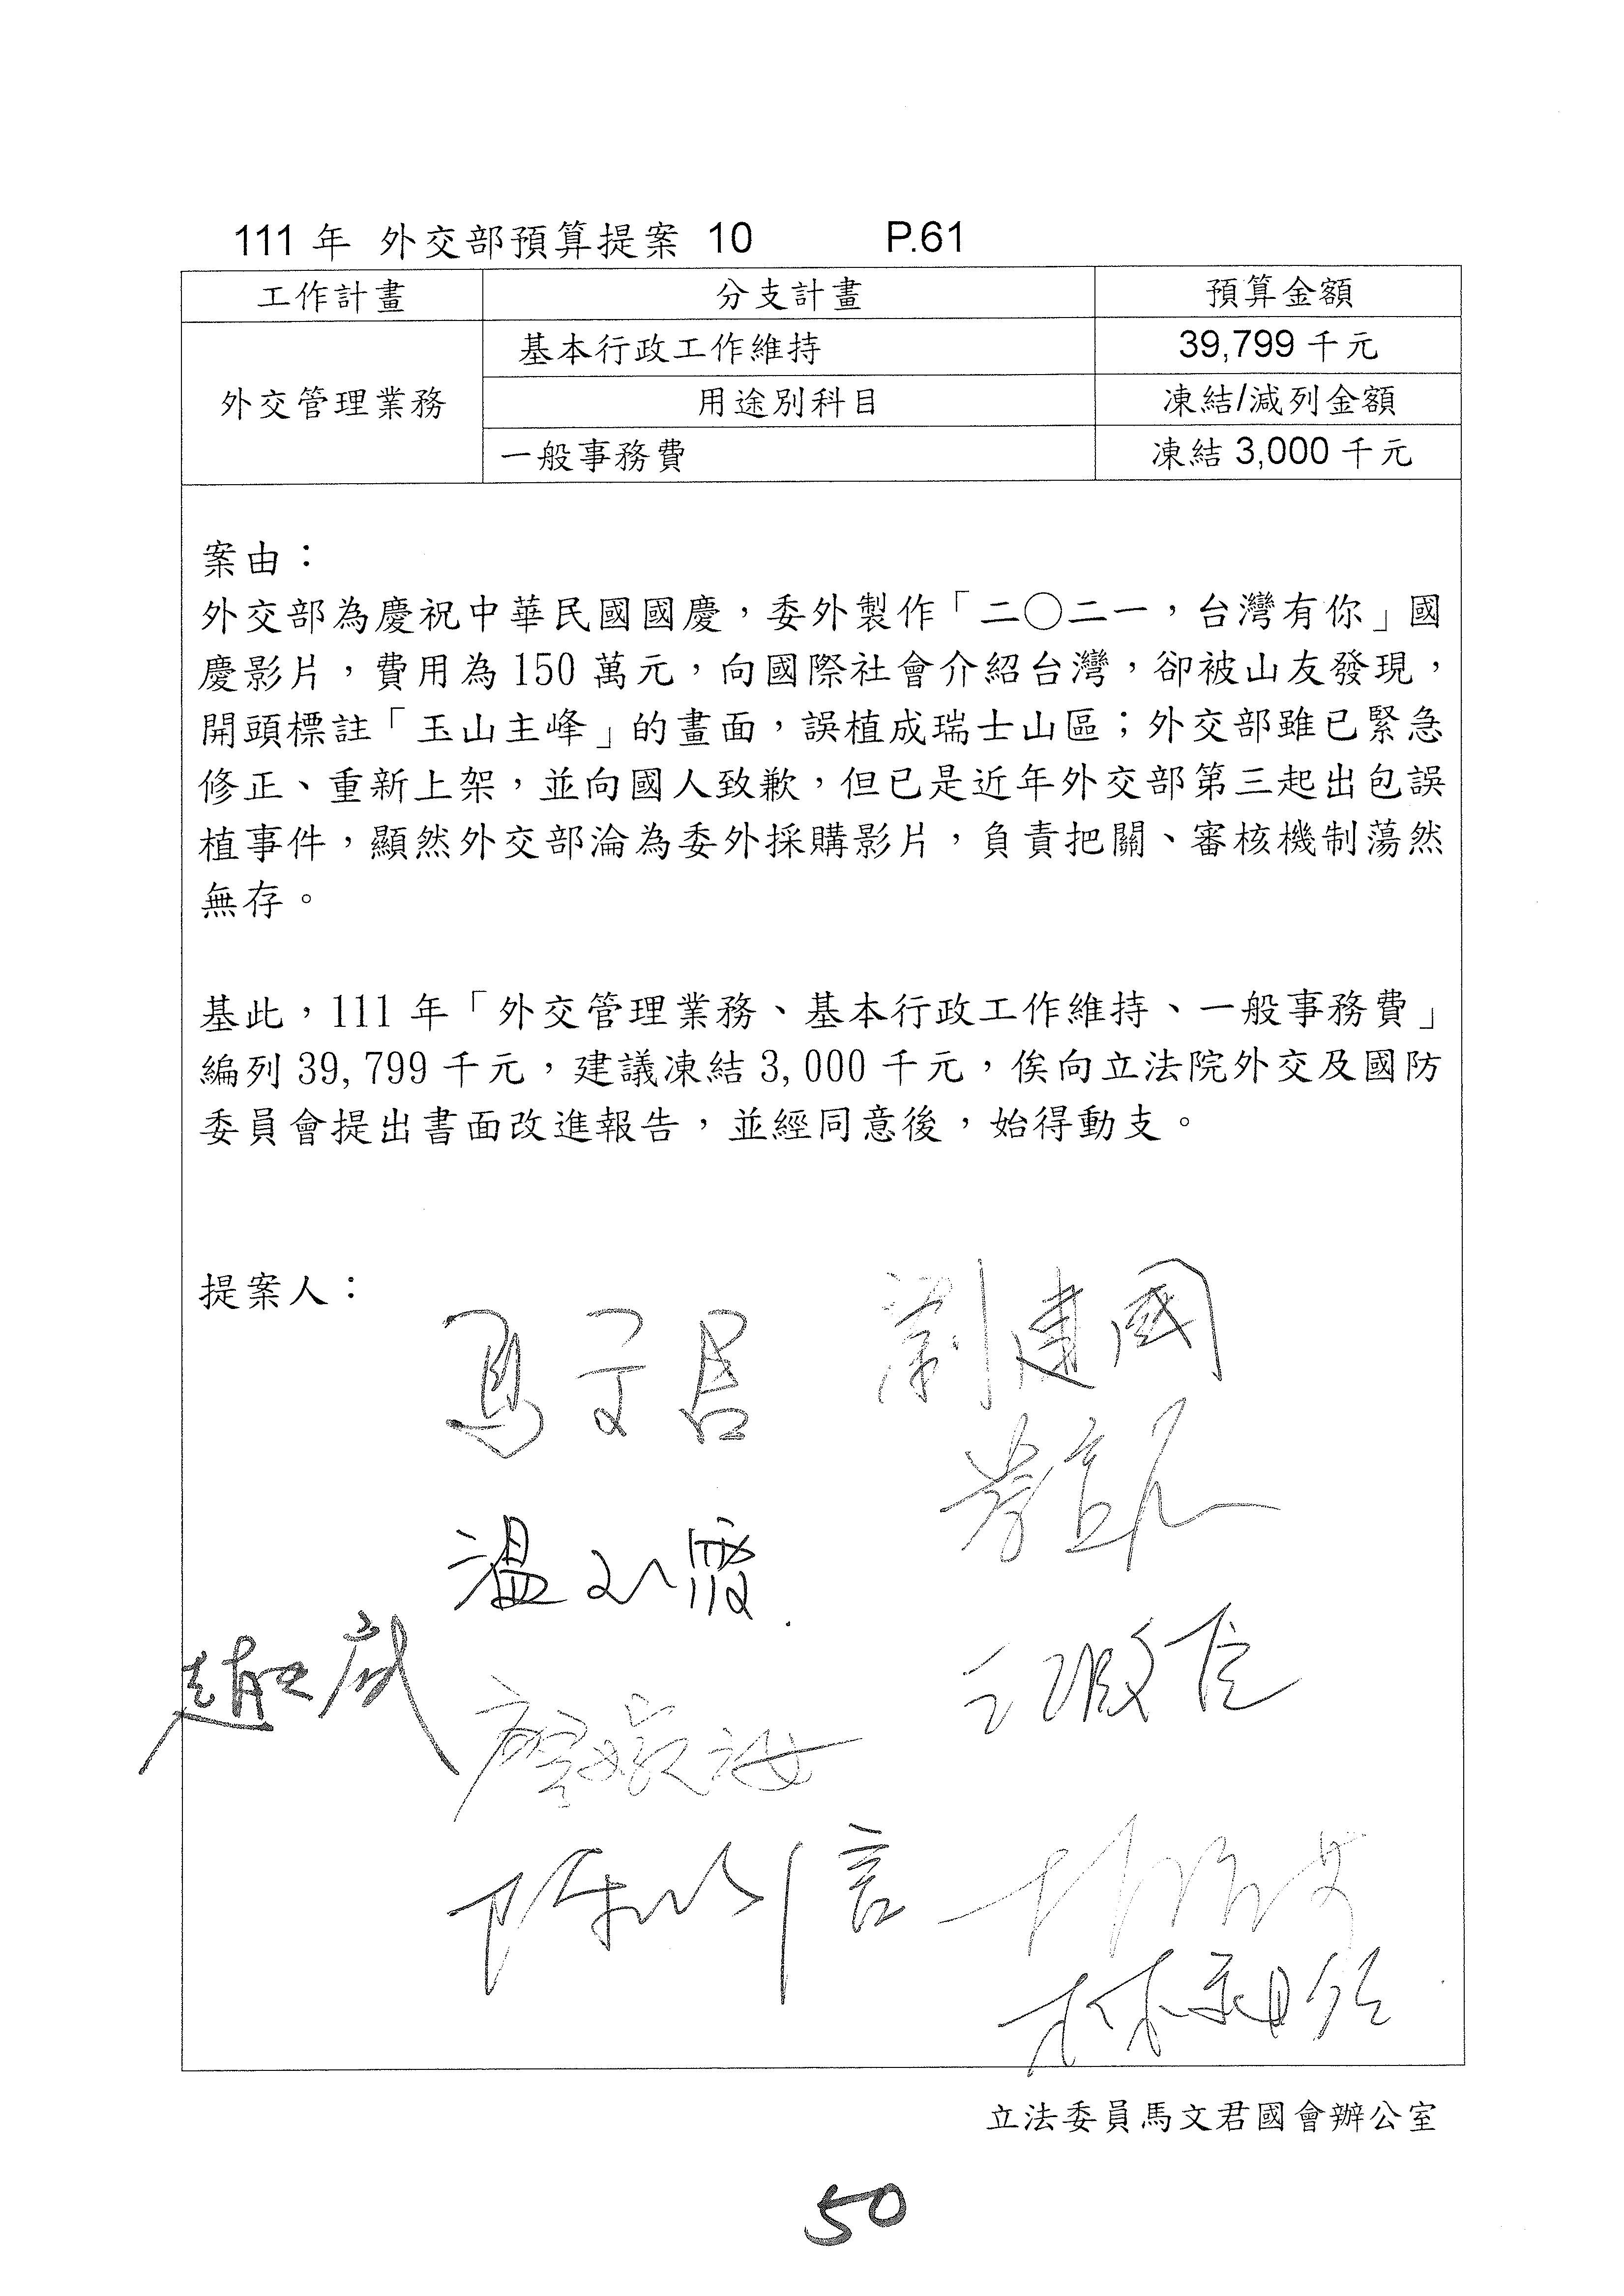 111 年 外交部預算提案 10 P.61
工作計畫 分支計畫 預算金額
外交管理業務 基本行政工作維持 39,799 千元
用途別科目 凍結/減列金額
一般事務費 凍結 3,000 千元
案由：
外交部為慶祝中華民國國慶，委外製作「二〇二一，台灣有你」國
慶影片，費用為 150 萬元，向國際社會介紹台灣，卻被山友發現，
開頭標註「玉山主峰」的畫面，誤植成瑞士山區；外交部雖已緊急
修正、重新上架，並向國人致歉，但已是近年外交部第三起出包誤
植事件，顯然外交部淪為委外採購影片，負責把關、審核機制蕩然
無存。
基此，111 年「外交管理業務、基本行政工作維持、一般事務費」
編列 39,799 千元，建議凍結 3,000 千元，俟向立法院外交及國防
委員會提出書面改進報告，並經同意後，始得動支。
提案人：
馬文君 劉建國
溫玉霞
陳以信
立法委員馬文君國會辦公室
50